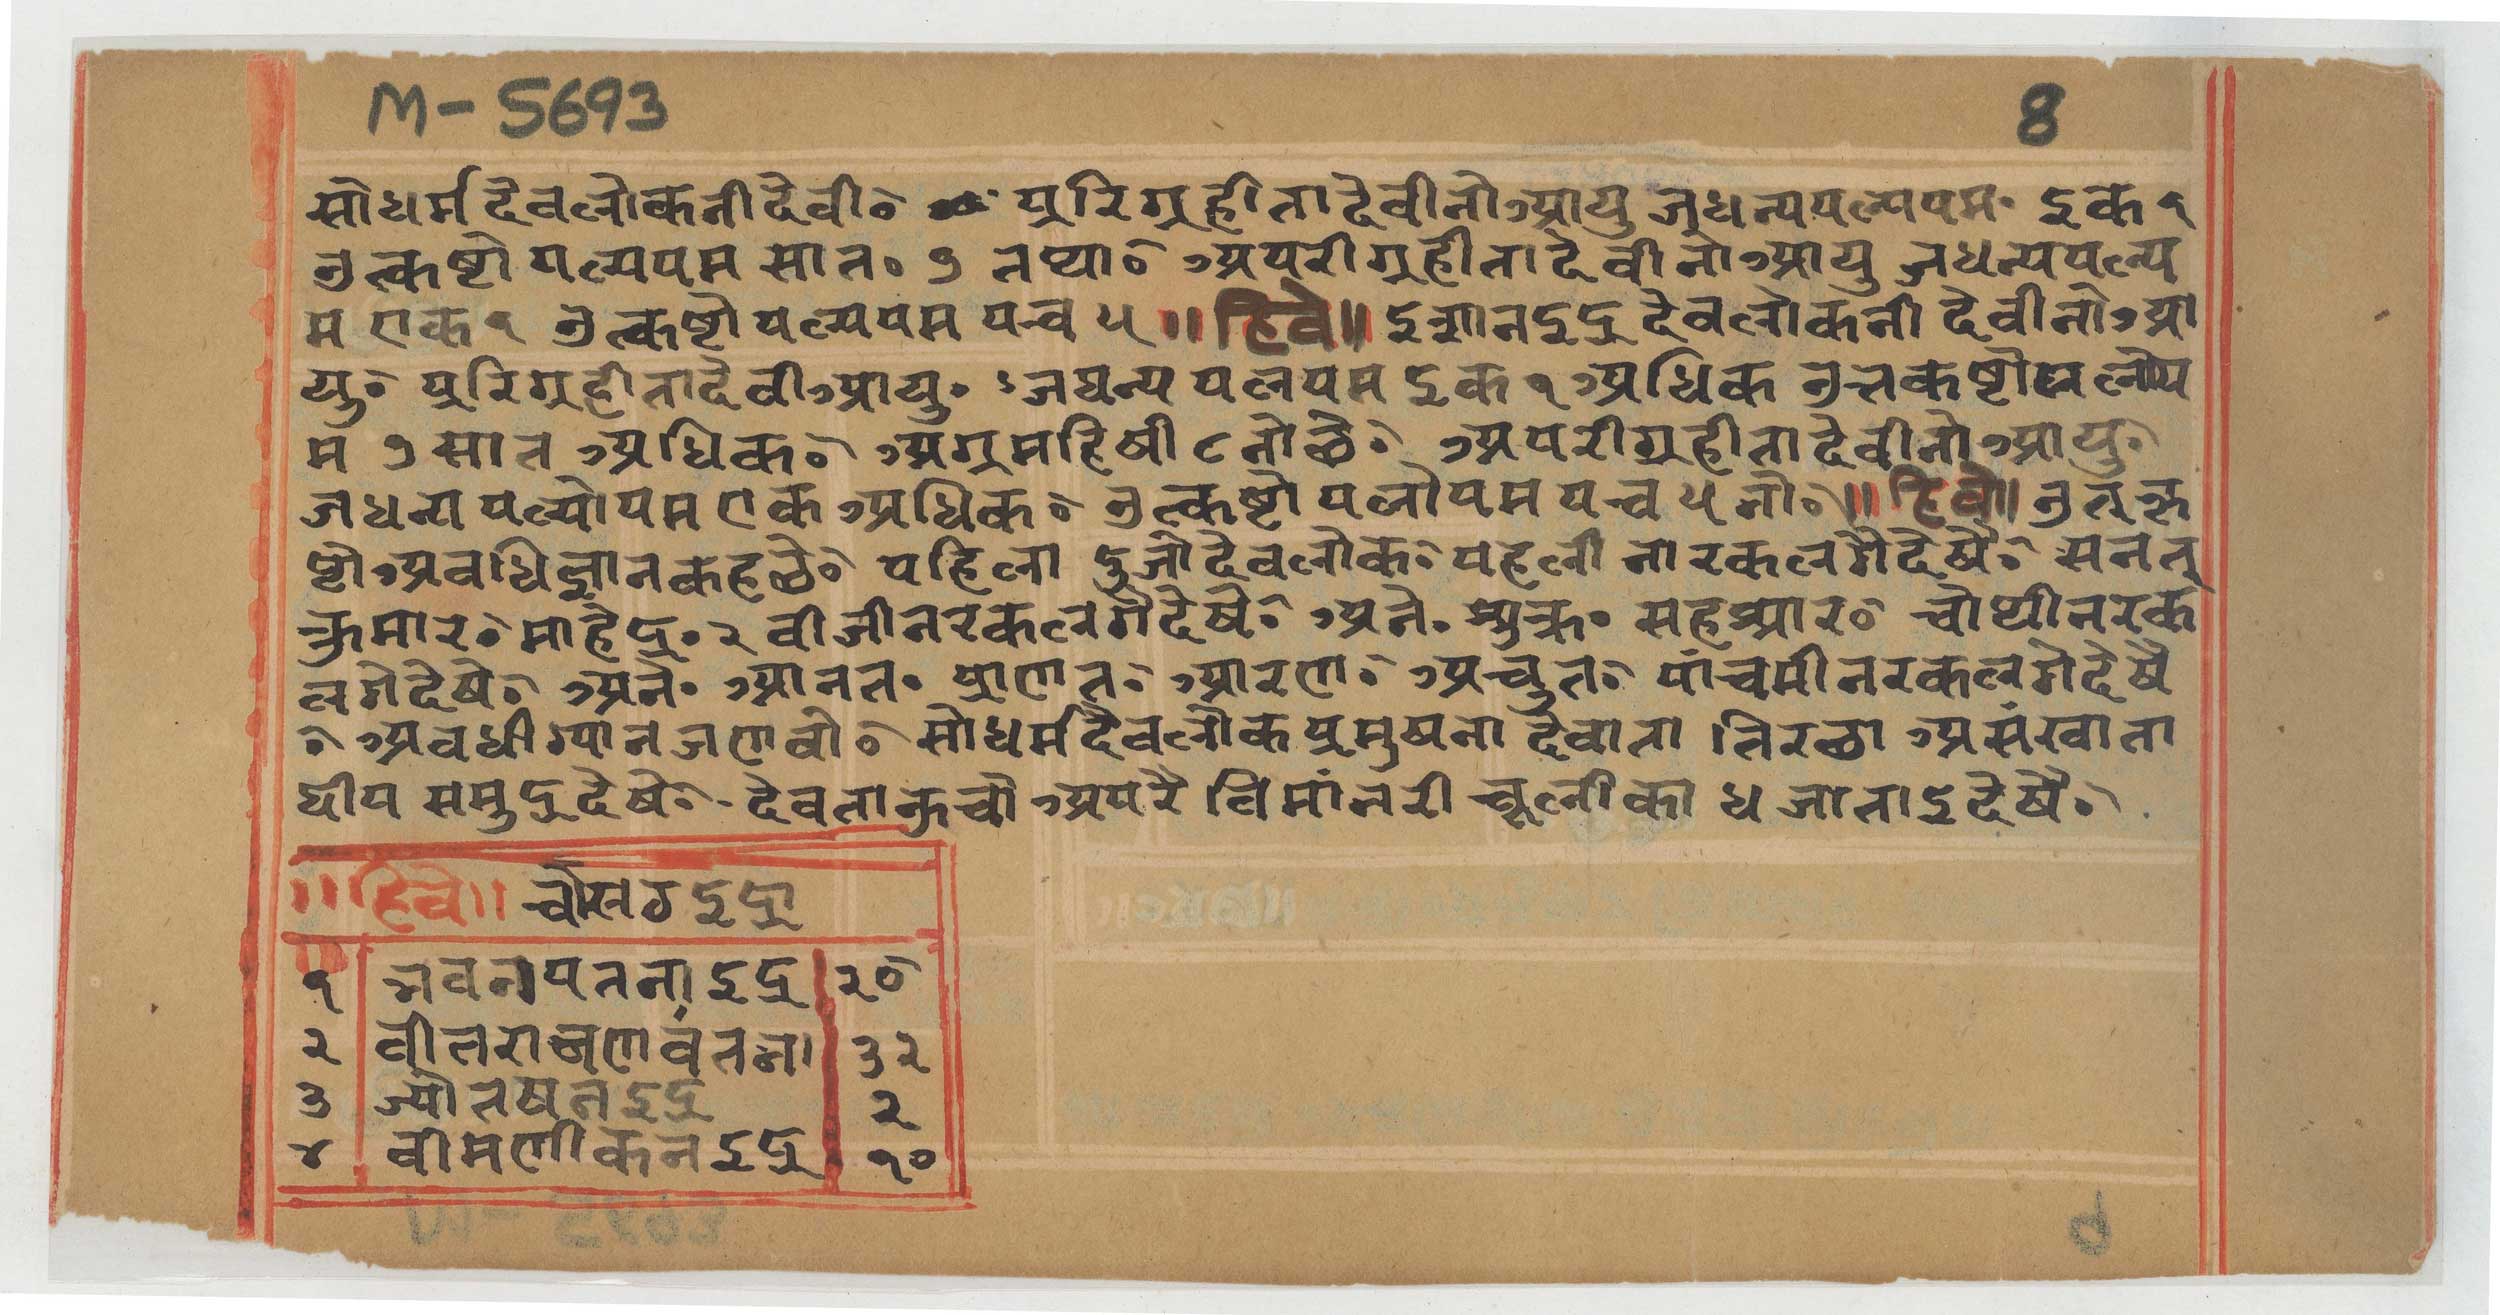 M-5693
8
सोधर्म देवलोकनी देवी० प्रिगृहीता देवीनो आयु जधन्य पल्यपम॰ इक १
उत्कष्टो पल्यपम सात० ७ तथा० अपरीगृहीता देवीनो आयु जधन्य पल्य
म एक १ उत्कष्टो पल्यपम पन्च ५ ॥ हिवे ॥ इशानइद्र देवलोकनी देवीनो आ
यु० प्रिगृहीता देवी आयु० जघन्य पलपम इक १ अधिक उतकष्टो
म ७ सात अधिक० अग्रमहिषी ८ नो छै० अपरीगृहीता देवीनो आयु०
जधन्य पल्योपम एक अधिक० उत्कष्टो पलोपम पन्च ५ नो० ॥ हिवे ॥ उत्कृ
ष्टो अवधिज्ञान कहछे० पहिला दुजो देवलोक० पहली नारक लगै देषै० सनत्
कुमार० माहेद्र० २ बीजी नरक लगै देषै० अने० शुक्र० सहश्रार० चोथी नरक
लगे देषे० अने० आनत० प्राणत० आरण० अच्चुत० पांचमी नरक लगे देषै
० अवधी ग्यान जणवो० सोधर्म देवलोक प्रमुषना देवाता तिरछा असंखाता
धीप समुद्र देषे० देवता कुचो अपरै विमांनरी चूलीका धजाताइ देषै०
॥ हिवे ॥ चोसठ इद्रा
१ भवनपतना इद्र २०
२ ३२
३ ज्योतषन इद्र २
४ वीमणीकन इद्र १०